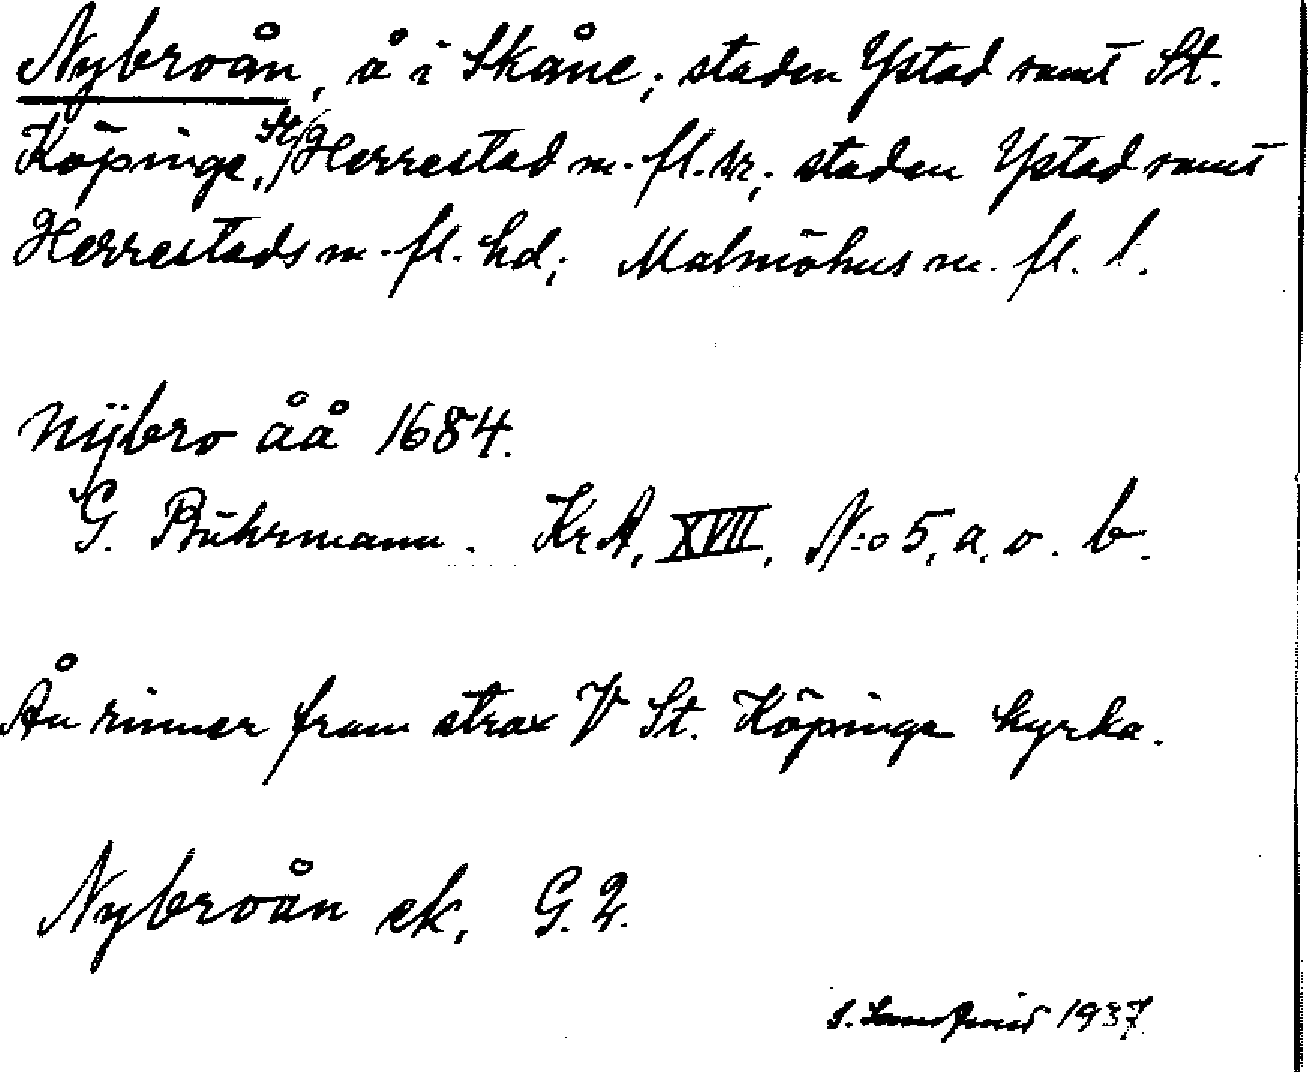 Nybroån, å i Skåne; staden Ystad samt St.
Köpinge, St. Herrestad m. fl. sr; staden Ystad samt
Herrestads m. fl. hd; Malmöhus m. fl. l.
Nÿbro åå 1684.
G. Buhrmann. KrA, XVII, N:o 5, a, o. b.
Ån rinner fram strax V St. Köpinge kyrka.
Nybroån ek. G. 2.
1937.